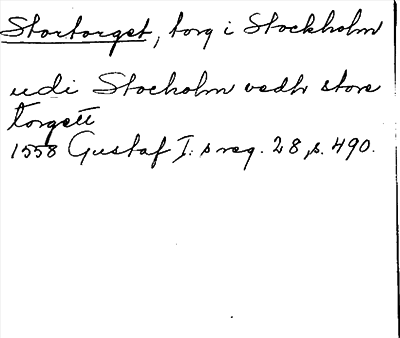 Stortorget, torg i Stockholm
udi Stocholm vedh store
torgett
1558 Gustaf I:s reg. 28, s. 490.